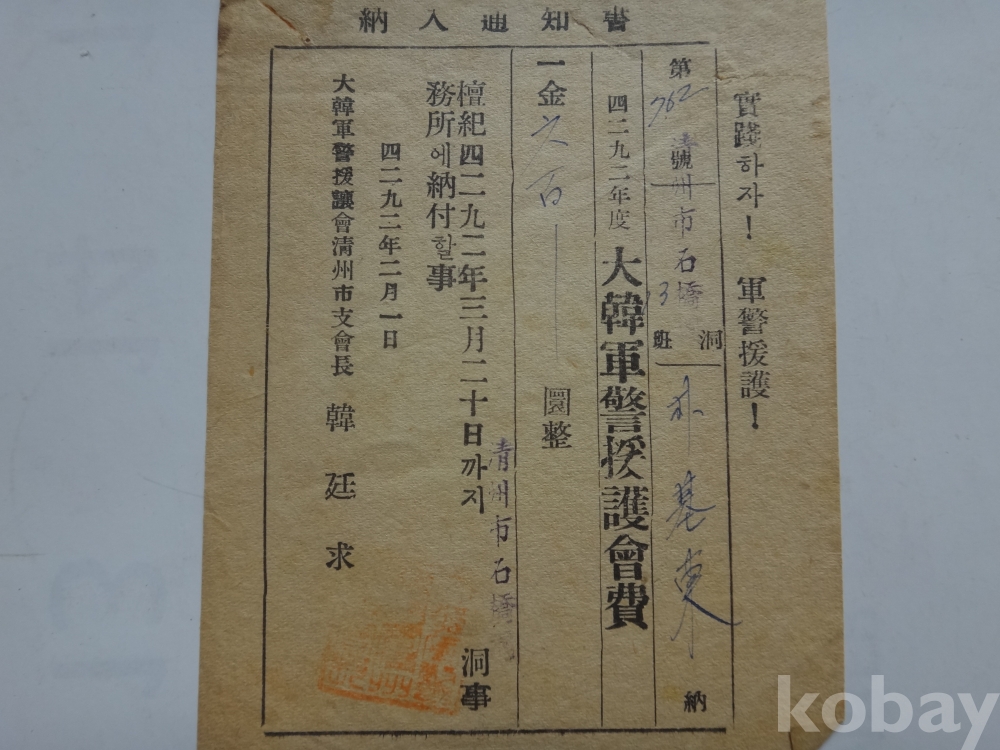 納入通知書
實踐하자! 軍警援護!
第762號 淸州市石橋洞 13班 朴基東 納
四二九二年度 大韓軍警援護會費
一金六百圜整
檀紀四二九二年三月二十日까지 淸州市石橋洞事
務所에納付할事
四二九二年二月一日
大韓軍警援護會淸州市支會長 韓廷求
kobay